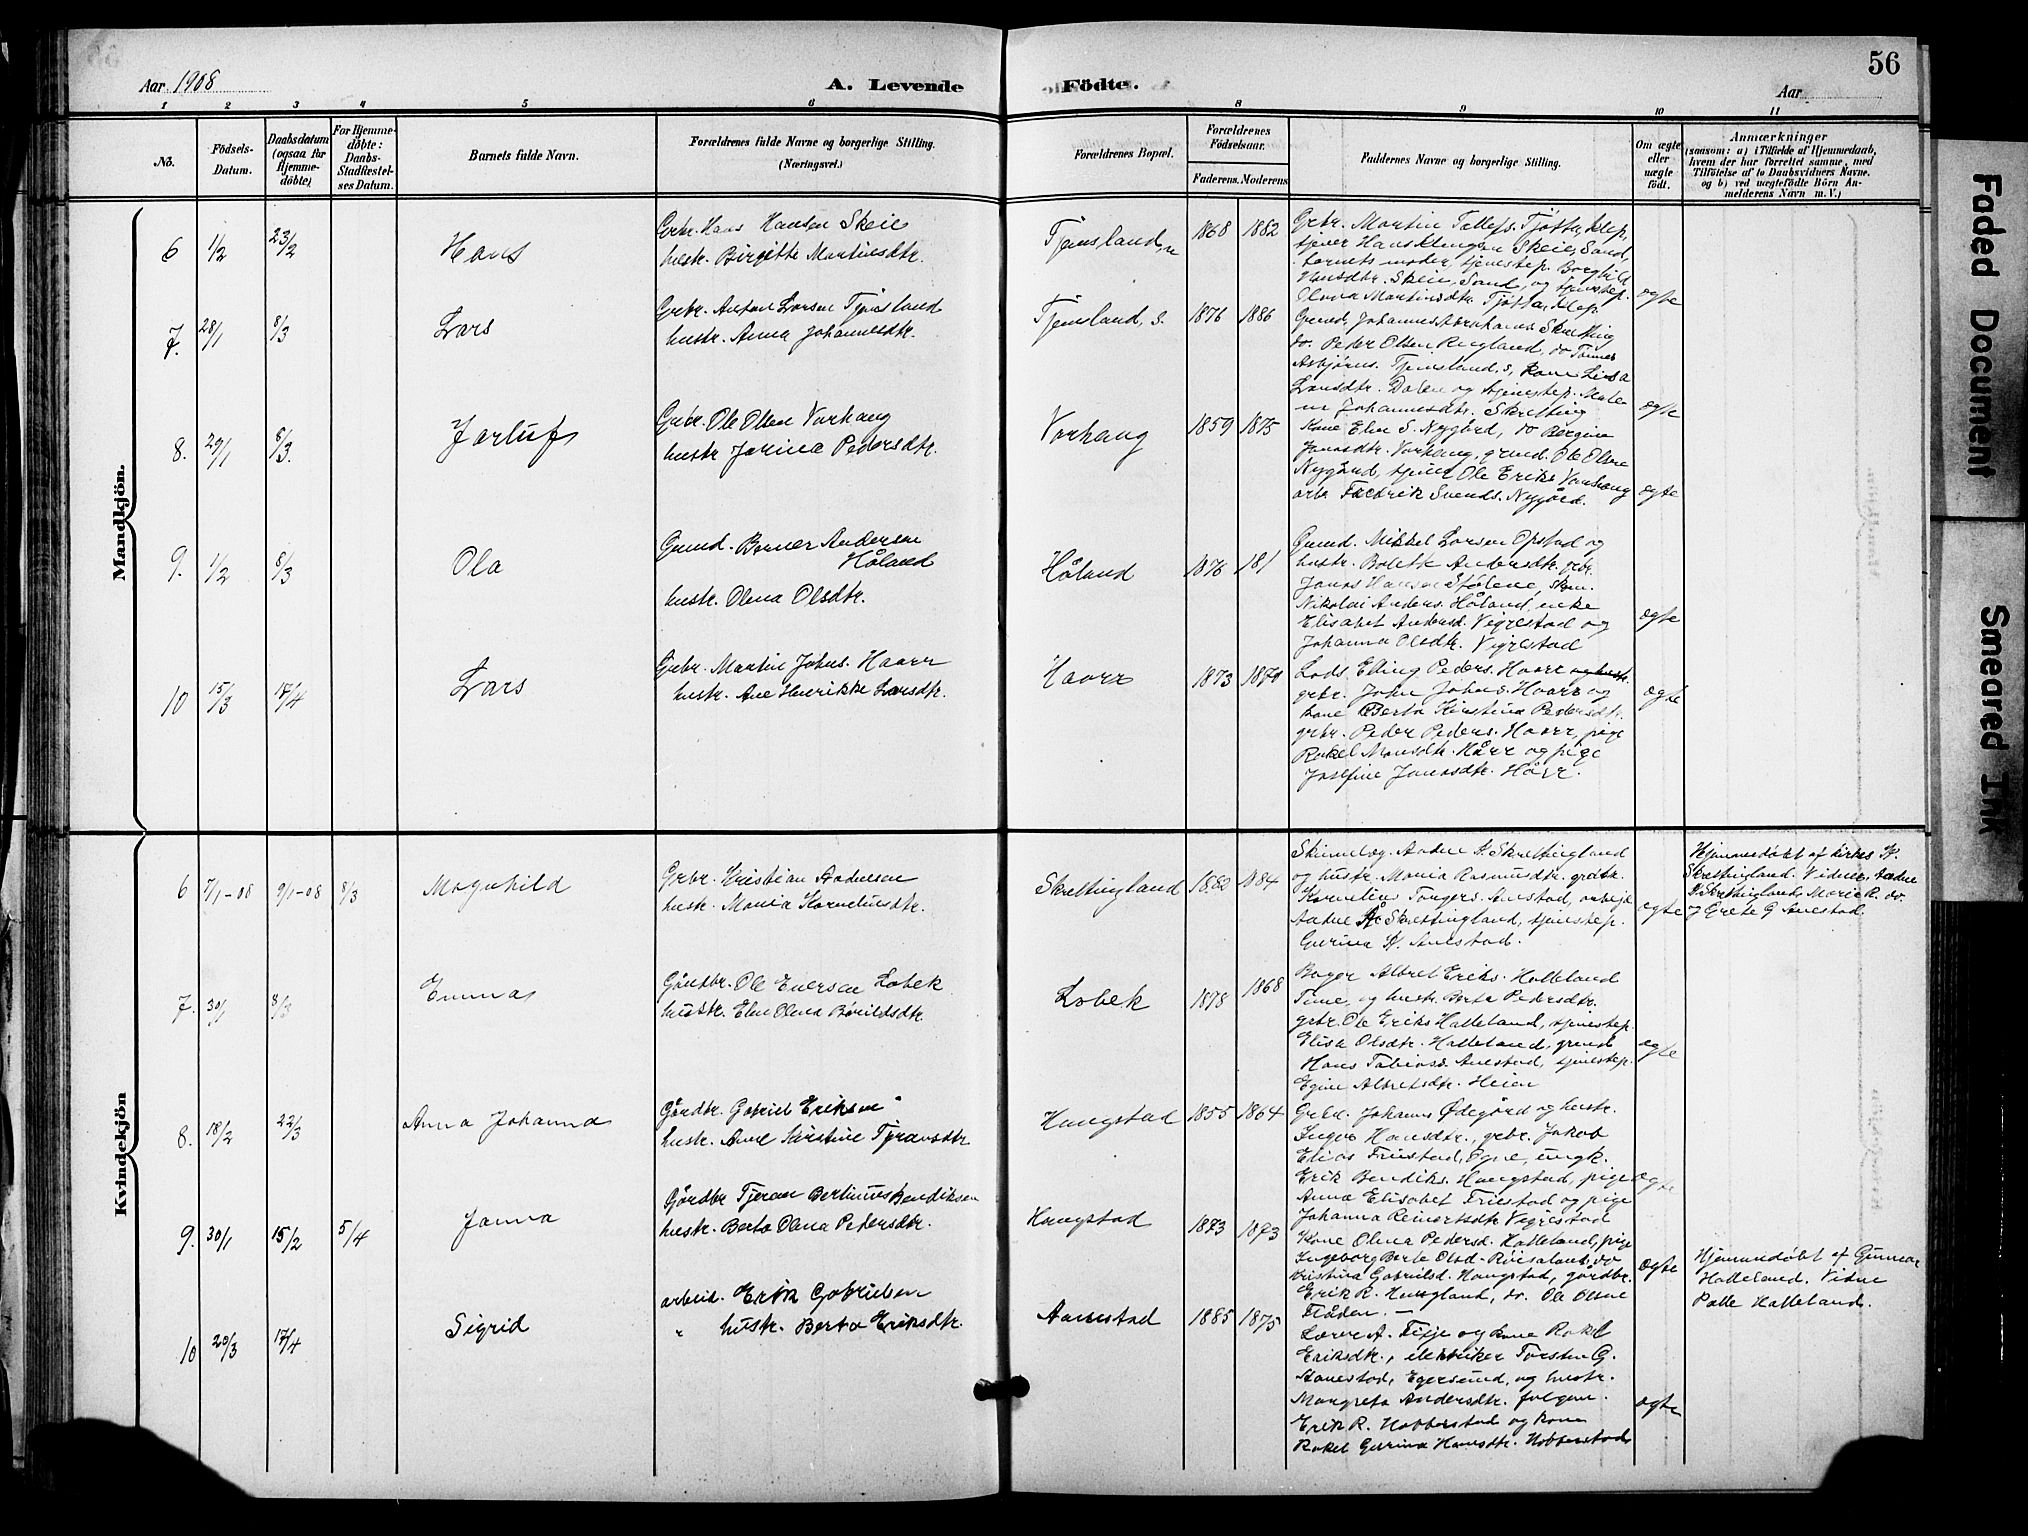 56
Aar 1908
A. Levende Födte.
Aar
1 2 3 4 5 6 8 9 10 11
No.
Födsels-Datum.
Daabsdatum (ogsaa for Hjemme-döbte)
For Hjemme-döbte: Daabs-Stadfæstel-ses Datum.
Barnets fulde Navn.
Forældrenes fulde Navne og borgerlige Stilling.
(Næringsvei.)
Forældrenes Bopæl.
Forældrenes Födselsaar.
Faderens. Moderens
Faddernes Navne og borgerlige Stilling.
Om ægte eller uægte födt.
Anmærkninger
(saasom: a) i Tilfælde af Hjemmedaab,
hvem der har forrettet samme, med
Tilföielse af to Daabsvidners Navne.
og b) ved uægtefödte Börn An-
melderens Navn m. V.)
Mandkjön.
6 1/2 23/2 Hans
Grbr. Hans Hansen Skeie
hustr. Birgitte Martinsdtr.
Tjemsland, n 1868 1882
Grbr. Martin Tollefs. Tjøtta, Klep,
tjener Hans Skeie, Sand,
barnets moder, tjenestep. Borghild
Hansdtr. Skeie, Sand, og tjenstep.
Olina Martinsdtr. Tjøtta, Klep.
ægte
7. 28/1 8/3 Lars
Grbr. Anton Larsen Tjemsland
hustr. Anna Johannesdtr.
Tjemsland, s. 1876 1886
Grmd. Johannes Abrahams Skretting
do. Peder Olsen Ringland, do Tønnes
Asbjørns. Tjemsland s, kone Lisa
Larsdtr. Dalen og tjenestep. Male
ne Johannesdtr. Skretting
ægte
8. 29/1 8/3. Jarluf
Grbr. Ole Olsen Varhaug
hustr Jorina Pedersdtr.
Varhaug 1859 1875
Kone Elen S. Nygård, do Bergine
Jonasdtr. Varhaug, grmd. Ole Olsen
Nygård, tjener Ole Eriks Varhaug
arb. Fredrik Svends. Nygård.
ægte
9. 1/2 8/3 Ola
Grmd. Berner Andersen
Håland
hustr. Olena Olsdtr.
Håland 1876 181
Grmd. Mikkel Larsen Opstad og
hustr. Bolette Andersdtr. grbr.
Jonas Hansen Stølene, skm.
Nikolai Anders. Håland, enke
Elisabet Andersd. Vigrestad og
Johanna Olsdtr. Vigrestad
ægte
10 15/3 17/4 Lars
Grbr. Martin Johns. Haarr
hustr. Ane Henrikke Larsdtr.
Haarr 1873 1879
Lods Elling Peders. Haarr og hustr.
grbr. John Johns. Haarr og
kone Berta Kristina Pedersdtr.
grbr. Peder Peders. Haarr, pige
Rakel Monsdtr. Hårr og pige
Josefine Jonasdtr. Hårr.
ægte
Kvindekjön
6 7/1-08 9/1-08 8/3 Magnhild
Grbr. Kristian Aadnesen
hustr. Maria Korneliusdtr.
Skrettingland 1882 1884
Aadne Skrettingland
og hustr. Maria Rasmusdtr. grdbr.
Kornelius Torgers. Anestad, arbeje
Aadne Skrettingland, tjenestep.
Gurina K. Anestad.
ægte
Hjemmedøbt af kirkes. K.
Skrettingland. Vidner Aadne
Skrettingland, Marie R. do.
og Grete G Anestad.
7. 30/1 8/3 Emma
Gårdbr. Ole Enersen Lobek
hustr. Elen Olena Børildsdtr.
Lobek 1878 1868
Bager Albret Eriks. Halleland
Time, og hustr. Berta Pedersdtr.
grbr. Ole Eriks Halleland, tjenestep.
Elisa Olsdtr. Halleland, grmd
Hans Tobias. Anestad, tjenestep.
Egine Albretsdtr. Heien
ægte
8. 18/2 22/3 Anna Johanna
Gårdbr. Gabriel Eriksen
hustr. Anne Kirstine Tjeransdtr
Haugstad 1855 1864
Grbr. Johannes Ødegård og hustr.
Inger Hansdtr., grbr. Jakob
Elias Friestad, Ogne, ungk.
Erik Bendiks. Haugstad, pige
Anna Elisabet Friestad og pige
Johanna Reinertsdtr Vigrestad
ægte
9. 30/1 15/2 5/4 Janna
Gårdbr Tjeran Bertinius Bendiksen
hustr. Berta Olena Pedersdtr.
Haugstad 1873 1873
Kone Olena Pedersd. Halleland, pige
Ingeborg Berte Olsd. Røisaland, do
Kristina Gabrielsd. Haugstad, gårdbr.
Erik R. Haugland, do. Ole Olsen
Flåden. —
ægte
Hjemmedøbt af Gunnar
Halleland. Vidne
Palle Halleland.
10 20/3 17/4 Sigrid
arbeid. Erik Gabrielsen
" hustr. Berta Eriksdtr.
Aanestad 1885 1875
Lærer A. Tisje og kone Rakel
Eriksdtr., elektriker Torsten G.
Aanestad, Egersund, og hustr.
Margreta Andersdtr.
Erik R. Nobberstad og kone
Rakel Gurina Hansdtr. Nobberstad
ægte
Faded Document
Smeared Ink